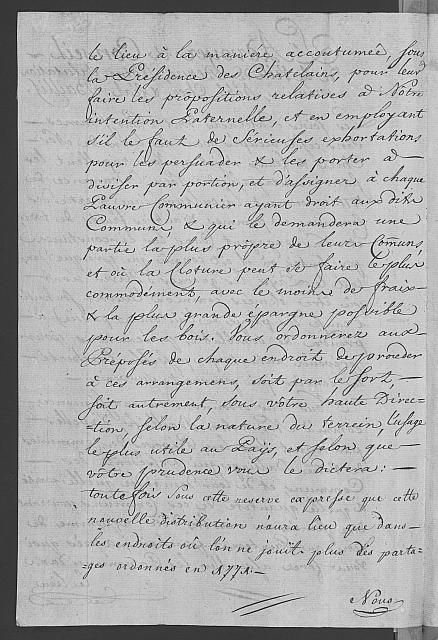 le lieu à la maniére accoutumeé, sous
la Présidence des Chatelains, pour leur
faire les propositions relatives à Notre
intention Paternelle, et en employant
s'il le faut de sérieuses exhortations
pour les persuader & les porter à —
diviser par portion, et d'assigner à chaque
Pauvre Communier ayant droit aux dits
Communs, & qui le demandera une
partie la plus própre de leurs Comuns
et où la Cloture peut se faire le plus
commodément, avec le moins de fraix
& la plus grande epargne possible
pour les bois. Vous ordonnerez aux
Préposés de chaque endroit de proceder
à ces arrangemens, soit par le sort,
soit autrement, sous vôtre haute Direc=
=tion, selon la nature du terrein l'usage
le plus utile au Païs, et selon que
vôtre prudence vous le dictera: —
toute fois sous cette reserve expresse que cette
nouvelle distribution n'aura lieu que dans
les endroits où lon ne jouit plus des parta=
=ges ordonnés en 1771.—
Nous